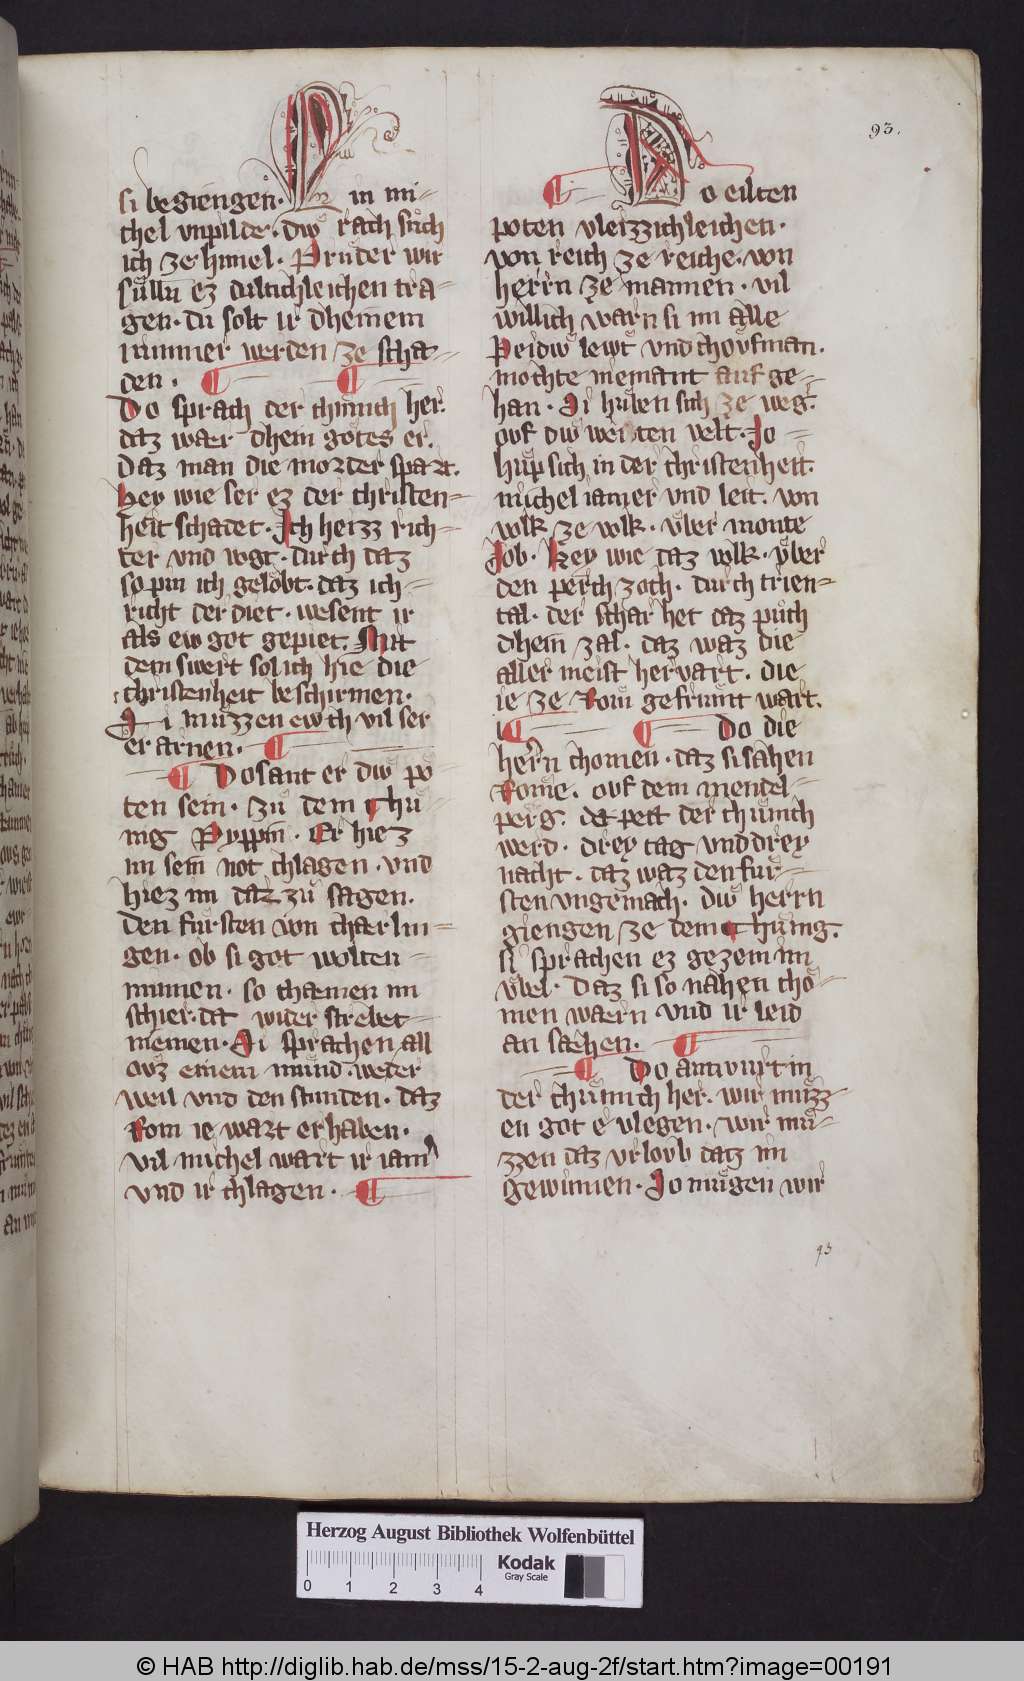 93.
si begiengen. in mi-
chel vnpilde. diw rach suͦch
ich ze himel. Pruͦder wir
suͤllñ ez dultichleichen tra-
gen. du solt ir dheinem
nimmer werden ze scha-
den.
Do sprach der chuͤnich her.
daz waer dhein gotes er.
daz man die morder spart.
Hey wie ser ez der christen-
heit schadet. Ich heizz rich-
ter vnd vogt. durch daz
so pin ich gelobt. daz ich
richt der diet. wesent ir
als ew got gepiet. Mit
dem swert sol ich hie die
christenheit beschirmen.
Si muͤzzen ewch vil ser
erarnen.
Do sant er diw po-
ten sein. zuͦ dem Chuͤ-
nig Pyppin. Er hiez
im sein not chlagen. vnd
hiez im daz zuͦ sagen.
den fuͤrsten von chaerlin-
gen. ob si got wolten
minnen. so chaemen im
schier. da wider strebet
niemen. Si sprachen all
ovz einem mund. weder
weil vnd den stunden. daz
Rom ie wart erhaben.
vil michel wart ir iam̾
vnd ir chlagen.
Do eilten
poten vleizzichleichen.
von reich ze reiche. von
herrn ze mannen. vil
willich warn si im alle
Peidiw lewt vnd choufman.
mochte niemant auf ge-
han. Si huͦben sich ze weg.
ovf diw weiten velt. Jo
huͦp sich in der christenheit.
michel iamer vnd leit. von
volk ze volk. vͤber monte
Job. Hey wie daz volk. vͤber
den perch zoch. durch trien-
tal. der schar het daz puͦch
dhein zal. daz waz die
aller meist hervart. die
ie ze Rom gefruͤmt wart.
Do die
herrn chomen. daz si sahen
Rome. ovf dem mendel-
perg. da pett der chuͤnich
werd. drey tag vnd drey
nacht. daz waz den fuͤr-
sten vngemach. diw herrn
giengen ze dem Chuͤnig.
si sprachen ez gezem im
vͤbel. daz si so nahen cho-
men waern vnd ir leid
an saehen.
Do antwurt in
der chuͤnich her. wir muͤzz-
en got e vlegen. wir muͤ-
zzen daz vrloub datz im
gewinnen. So muͤgen wir
93
Herzog August Bibliothek Wolfenbüttel
0 1 2 3 4
Kodak
Gray Scale
© HAB http://diglib.hab.de/mss/15-2-aug-2f/start.htm?image=00191